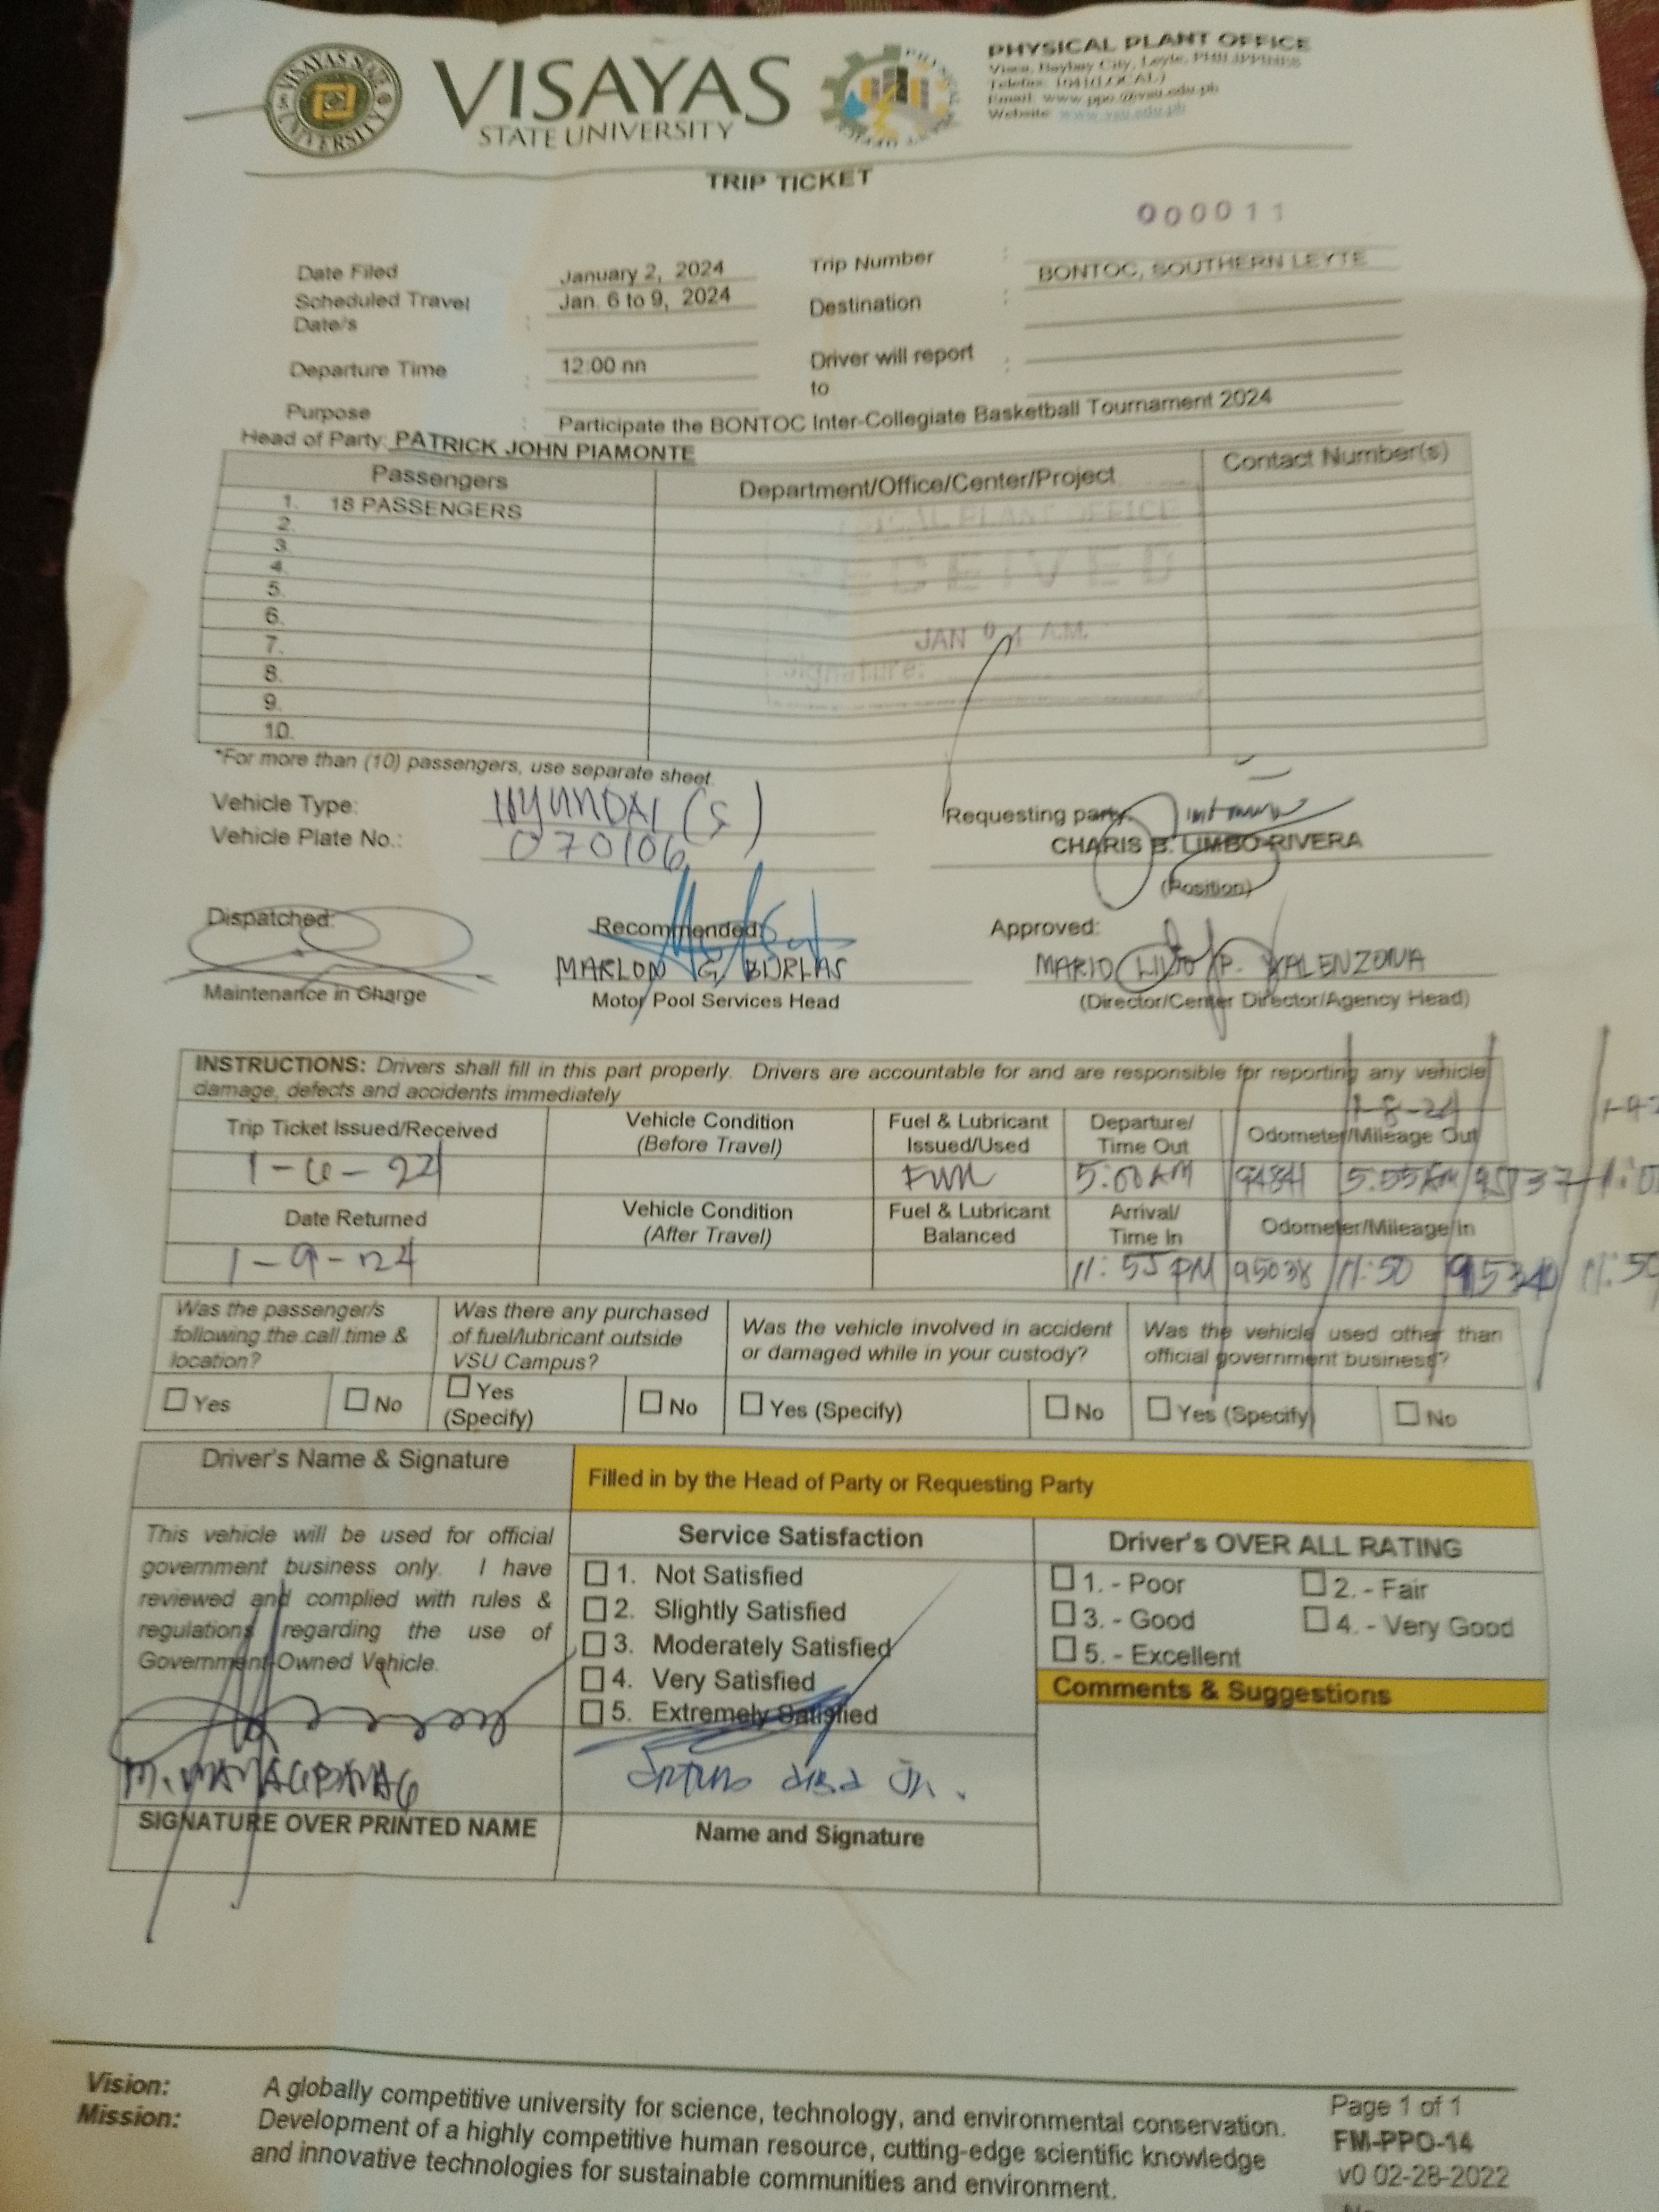 VISAYAS STATE UNIVERSITY
VISAYAS
STATE UNIVERSITY
PHYSICAL PLANT OFFICE
Visca, Baybay City, Leyte, PHILIPPINES
Telefax: 1041(LOCAL)
Email: www.ppo@vsu.edu.ph
Website: www.vsu.edu.ph
TRIP TICKET
000011
Date Filed January 2, 2024 Trip Number : BONTOC, SOUTHERN LEYTE
Scheduled Travel Date/s : Jan. 6 to 9, 2024 Destination :
Departure Time : 12:00 nn Driver will report to :
Purpose : Participate the BONTOC Inter-Collegiate Basketball Tournament 2024
Head of Party: PATRICK JOHN PIAMONTE
Passengers Department/Office/Center/Project Contact Number(s)
1. 18 PASSENGERS
2.
3.
4.
5.
6.
7.
8.
9.
10.
PLANT OFFICE
RECEIVED
JAN A.M.
Signature:
*For more than (10) passengers, use separate sheet.
Vehicle Type: HYUNDAI (S)
Vehicle Plate No.: 070106
Requesting party:
CHARIS B. LIMBO-RIVERA
(Position)
Dispatched: Recommended: Approved:
MARLON G. BURLAS MARIO LILIO P. VALENZONA
Maintenance in Charge Motor Pool Services Head (Director/Center Director/Agency Head)
INSTRUCTIONS: Drivers shall fill in this part properly. Drivers are accountable for and are responsible for reporting any vehicle
damage, defects and accidents immediately
1-8-24
Trip Ticket Issued/Received Vehicle Condition (Before Travel) Fuel & Lubricant Issued/Used Departure/ Time Out Odometer/Mileage Out
Full 5:00 AM 94841 5:55 AM
Date Returned Vehicle Condition (After Travel) Fuel & Lubricant Balanced Arrival/ Time In Odometer/Mileage/In
1-9-24 11:55 PM 95038 11:50 95340 11:50
Was the passenger/s following the call time & location? Was there any purchased of fuel/lubricant outside VSU Campus? Was the vehicle involved in accident or damaged while in your custody? Was the vehicle used other than official government business?
Yes No Yes (Specify) No Yes (Specify) No Yes (Specify) No
Driver's Name & Signature Filled in by the Head of Party or Requesting Party
This vehicle will be used for official
government business only. I have
reviewed and complied with rules &
regulations regarding the use of
Government-Owned Vehicle.
SIGNATURE OVER PRINTED NAME
Service Satisfaction
1. Not Satisfied
2. Slightly Satisfied
3. Moderately Satisfied
4. Very Satisfied
5. Extremely Satisfied
Name and Signature
Driver's OVER ALL RATING
1. - Poor 2. - Fair
3. - Good 4. - Very Good
5. - Excellent
Comments & Suggestions
Vision: A globally competitive university for science, technology, and environmental conservation.
Mission: Development of a highly competitive human resource, cutting-edge scientific knowledge
and innovative technologies for sustainable communities and environment.
Page 1 of 1
FM-PPO-14
v0 02-28-2022
No.